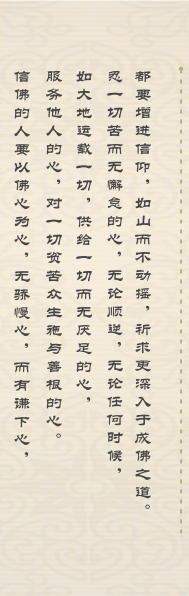 都要增进信仰，如山而不动摇，祈求更深入于成佛之道。
忍一切苦而无懈怠的心，无论顺逆，无论任何时候，
如大地运载一切，供给一切而无厌足的心，
服务他人的心，对一切贫苦众生施与善根的心。
信佛的人要以佛心为心，无骄慢心，而有谦下心，